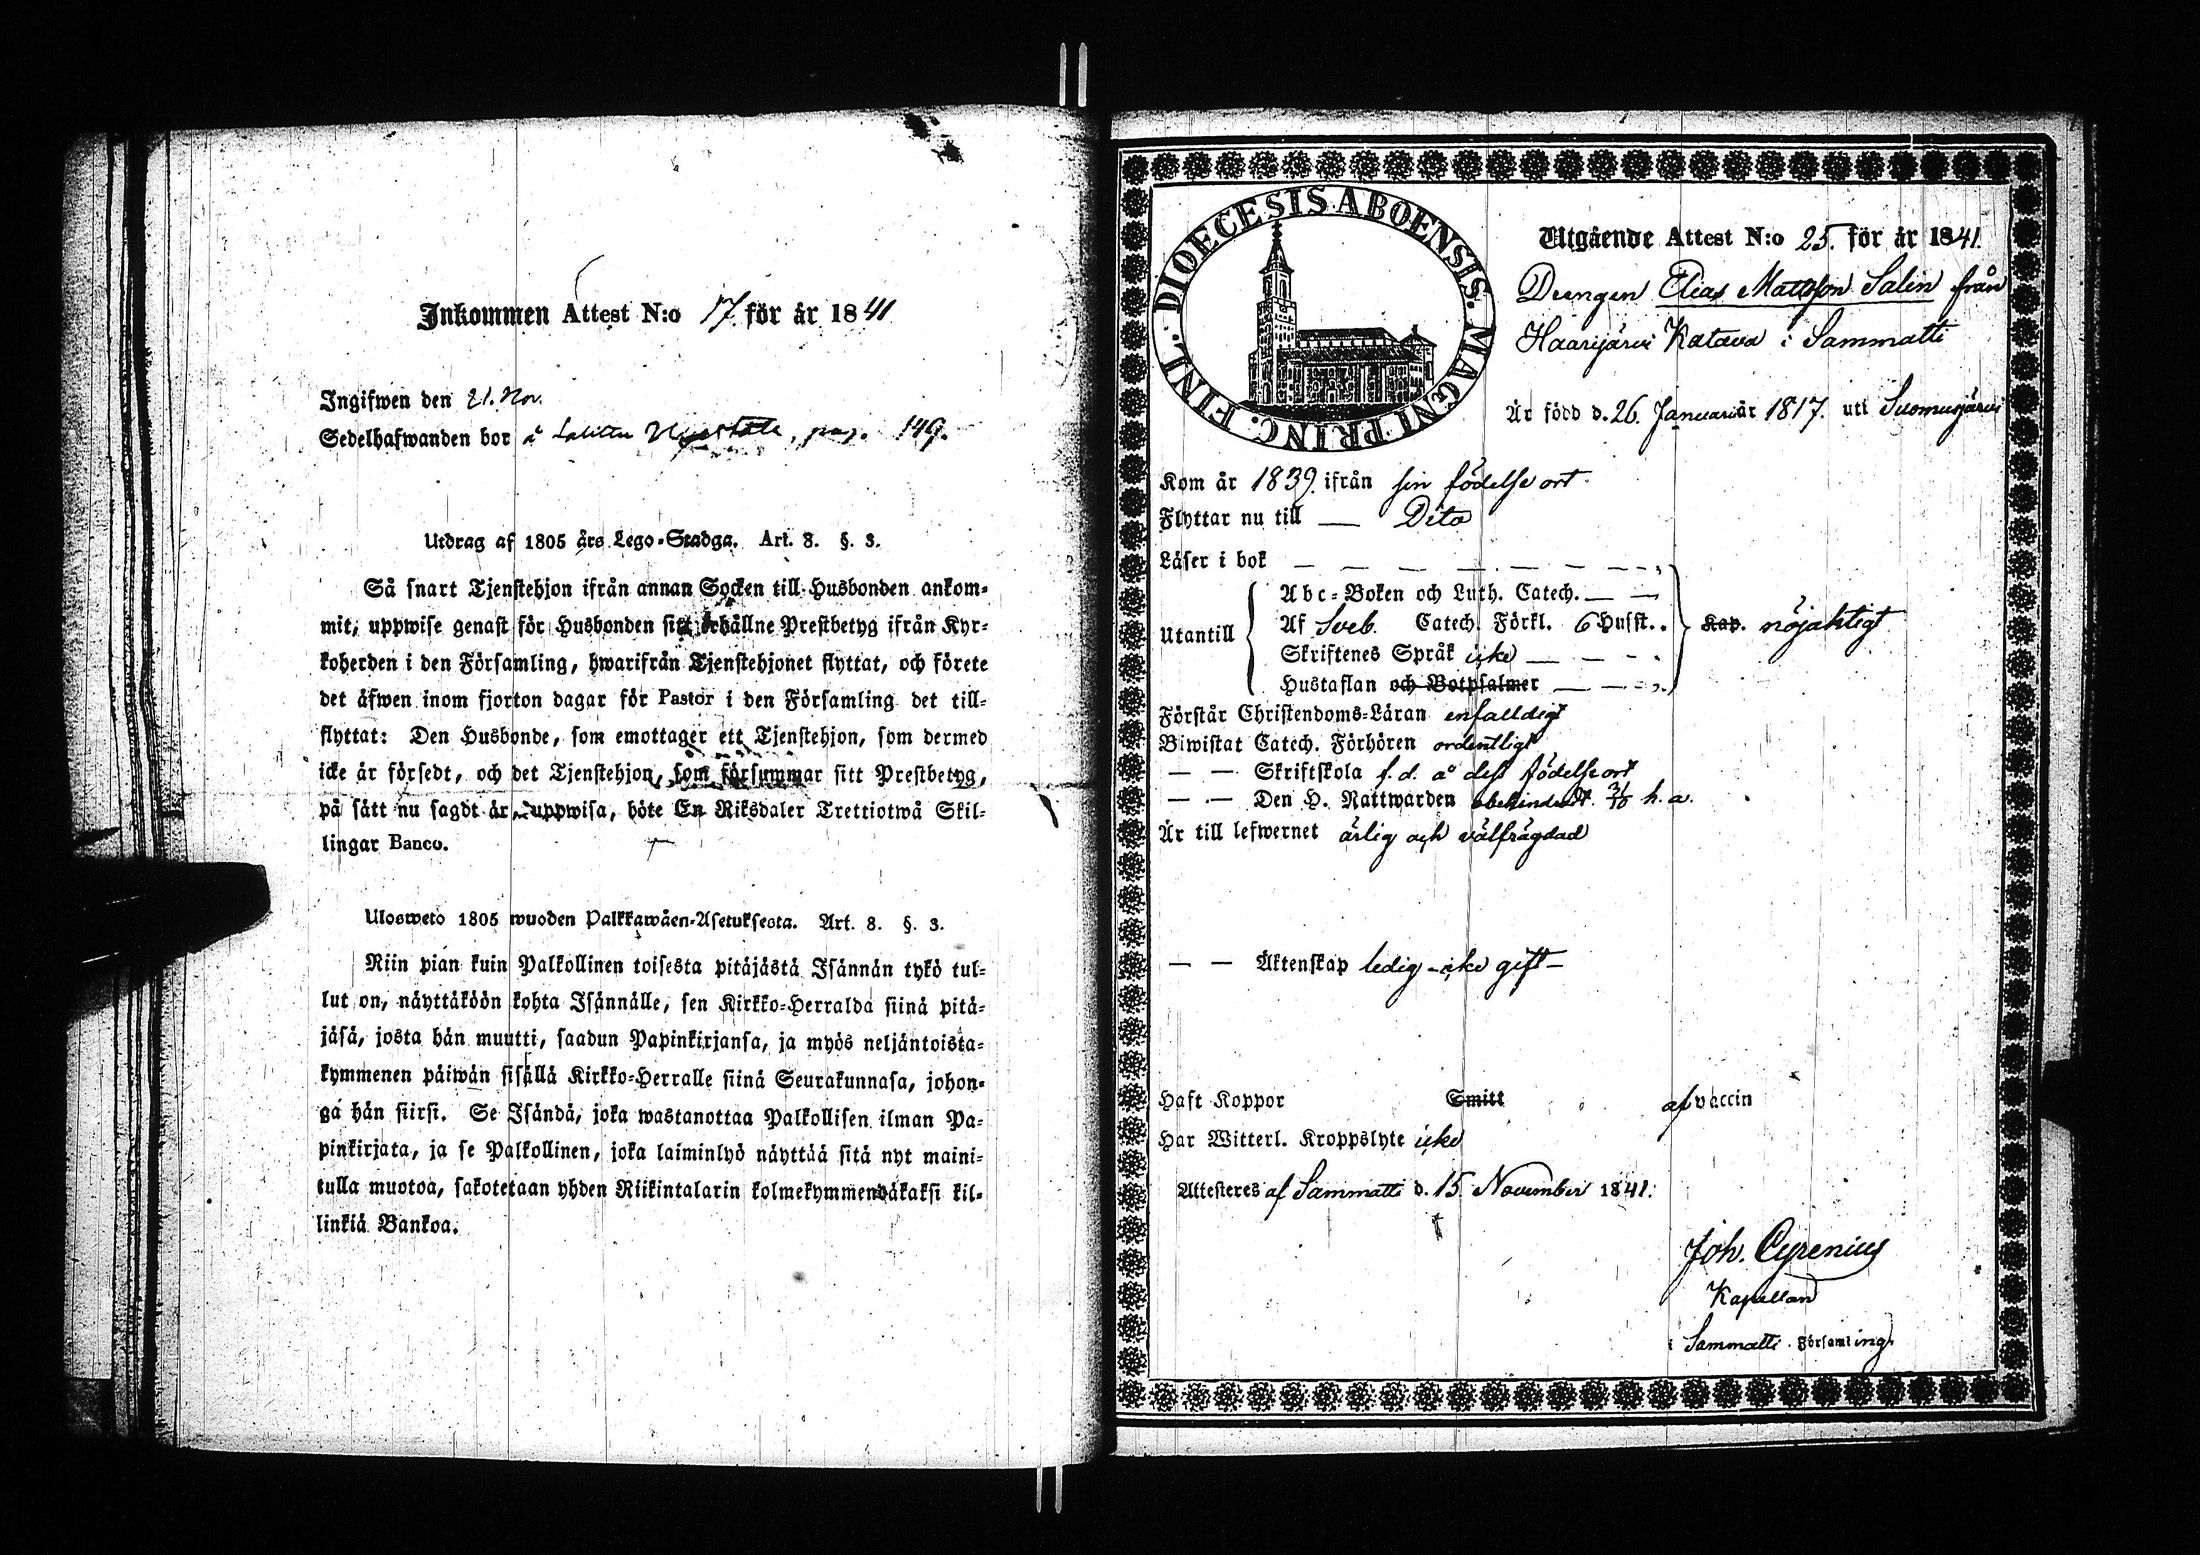 Inkommen Attest N:o 17. för år 1841
Ingifwen den 21. Nov.
Sedelhafwanden bor å pag. 149.
Utdrag af 1805 års Lego-Stadga. Art. 8. §. 3.
Så snart Tjenstehjon ifrån annan Socken till Husbonden ankom-
mit, uppwise genast för Husbonden sitt erhållne Prestbetyg ifrån Kyr-
koherden i den Församling, hwarifrån Tjenstehjonet flyttat, och förete
det äfwen inom fjorton dagar för Pastor i den Församling det till-
flyttat: Den Husbonde, som emottager ett Tjenstehjon, som dermed
icke är försedt, och det Tjenstehjon, som försummar sitt Prestbetyg,
på sätt nu sagdt är, uppwisa, böte En Riksdaler Trettiotwå Skil-
lingar Banco.
Ulosweto 1805 wuoden Palkkawäen-Asetuksesta. Art. 8. §. 3.
Niin pian kuin Palkollinen toisesta pitäjästä Isännän tykö tul-
lut on, näyttäköön kohta Isännälle, sen Kirkko-Herralda siinä pitä-
jäsä, josta hän muutti, saadun Papinkirjansa, ja myös neljäntoista-
kymmenen päiwän sisällä Kirkko-Herralle siinä Seurakunnasa, johon-
ga hän siirsi. Se Isändä, joka wastanottaa Palkollisen ilman Pa-
pinkirjata, ja se Palkollinen, joka laiminlyö näyttää sitä nyt maini-
tulla muotoa, sakotetaan yhden Riikintalarin kolmekymmendäkaksi kil-
linkiä Bankoa.
DIOECESIS ABOENSIS. MAGNI PRINC. FINL.
Utgående Attest N:o 25. för år 1841.
Drengen Elias Mattsson Salin från
Haarijärvi Katava i Sammatti
Är född d. 26. Januari år 1817. uti Suomusjärvi
Kom år 1839. ifrån sin födelse ort.
Flyttar nu till — Dito
Läser i bok — — — — — —
Utantill
Abc-Boken och Luth. Catech. — —
Af Sveb. Catech. Förkl. 6 Hufst.. Kap. nöjaktigt
Skriftenes Språk icke — — — .
Hustaflan och Botpsalmer — — —
Förstår Christendoms-Läran enfalldigt
Biwistat Catech. Förhören ordentligt
— — Skriftskola f. d. å dess födelse ort
— — Den H. Nattwarden obehindradt. h. a.
Är till lefwernet ärlig och välfrägdad
— — Äktenskap ledig – icke gift –
Haft Koppor Smitt af vaccin
Har Witterl. Kroppslyte icke
Attesteres af Sammatti d. 15. November 1841.
Joh. Cyrenius
Kapellan
i Sammatti Församling.